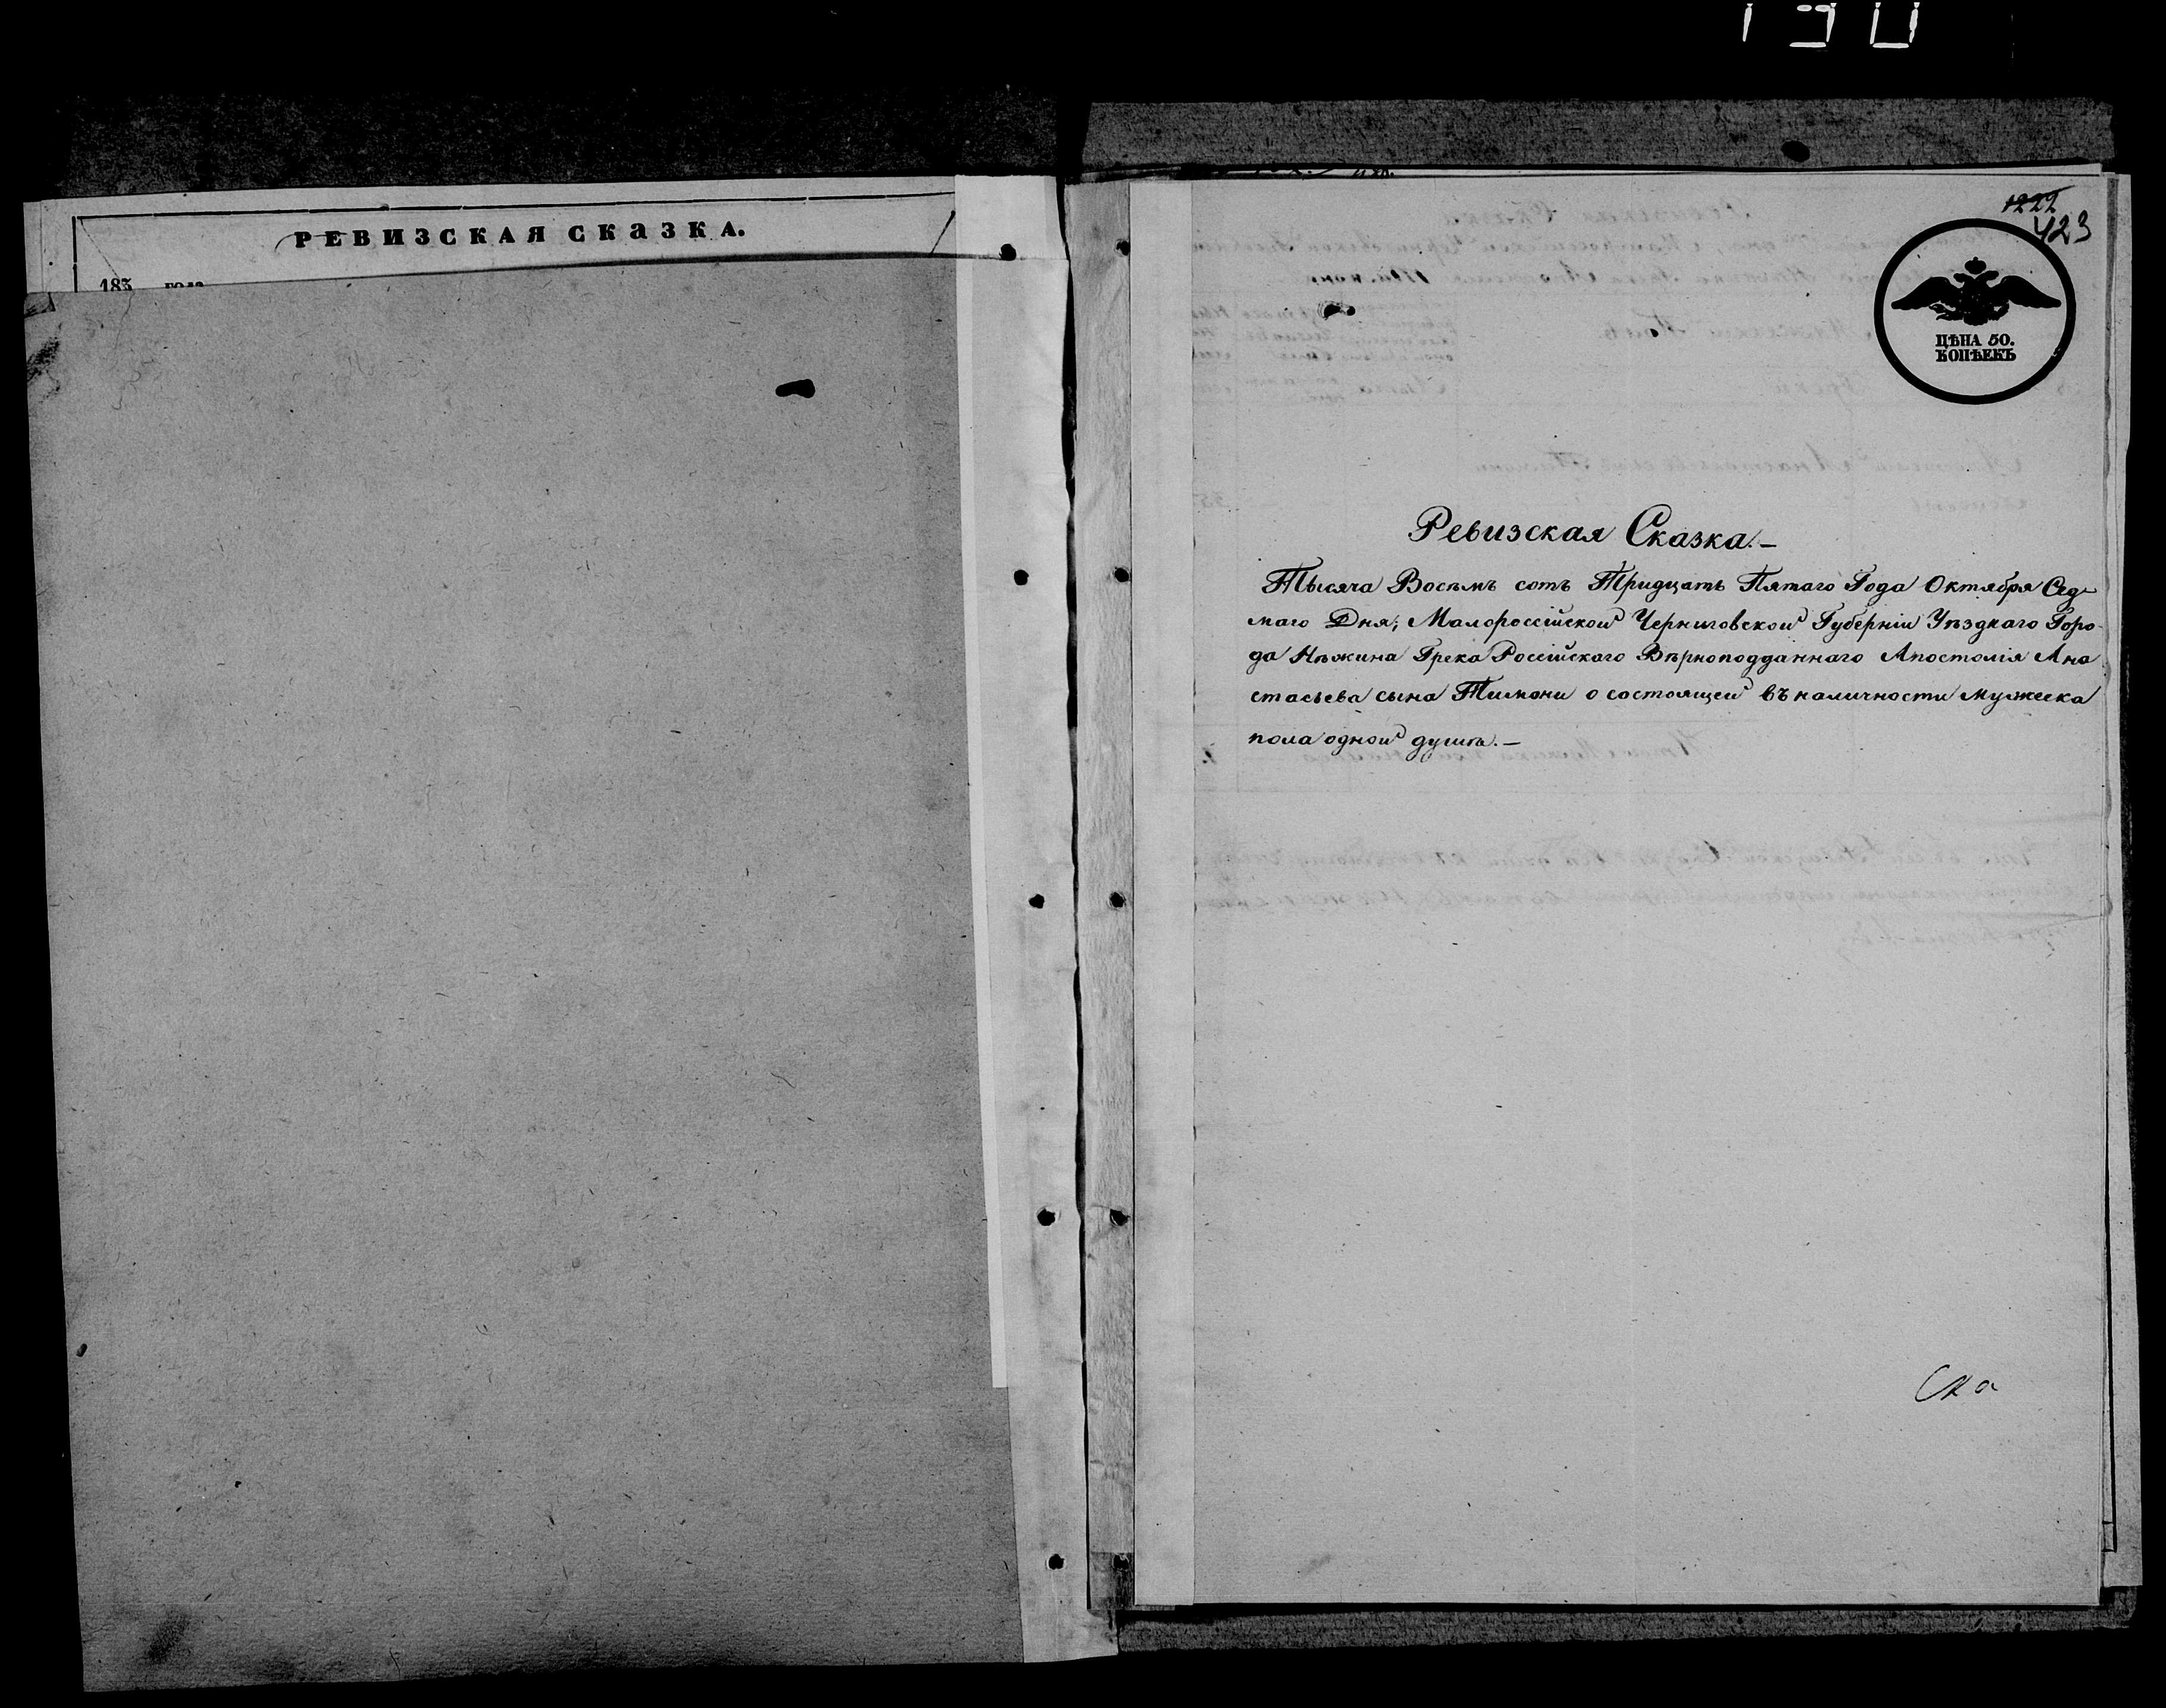 РЕВИЗСКАЯ СКАЗКА.
183 года
1222
423
ЦѢНА 50.
КОПѢЕКЪ
Ревизская Сказка.—
Тысяча Восемь сотъ Тридцать Пятаго Года Октября Сед-
маго Дня; Малороссійской Черниговской Губерніи Уѣзднаго Горо-
да Нѣжина Грека Россійскаго Вѣрноподданнаго Апостолія Ана
стасьева сына Тимони о состоящей въ наличности мужеска
пола одной душѣ.—
Ска